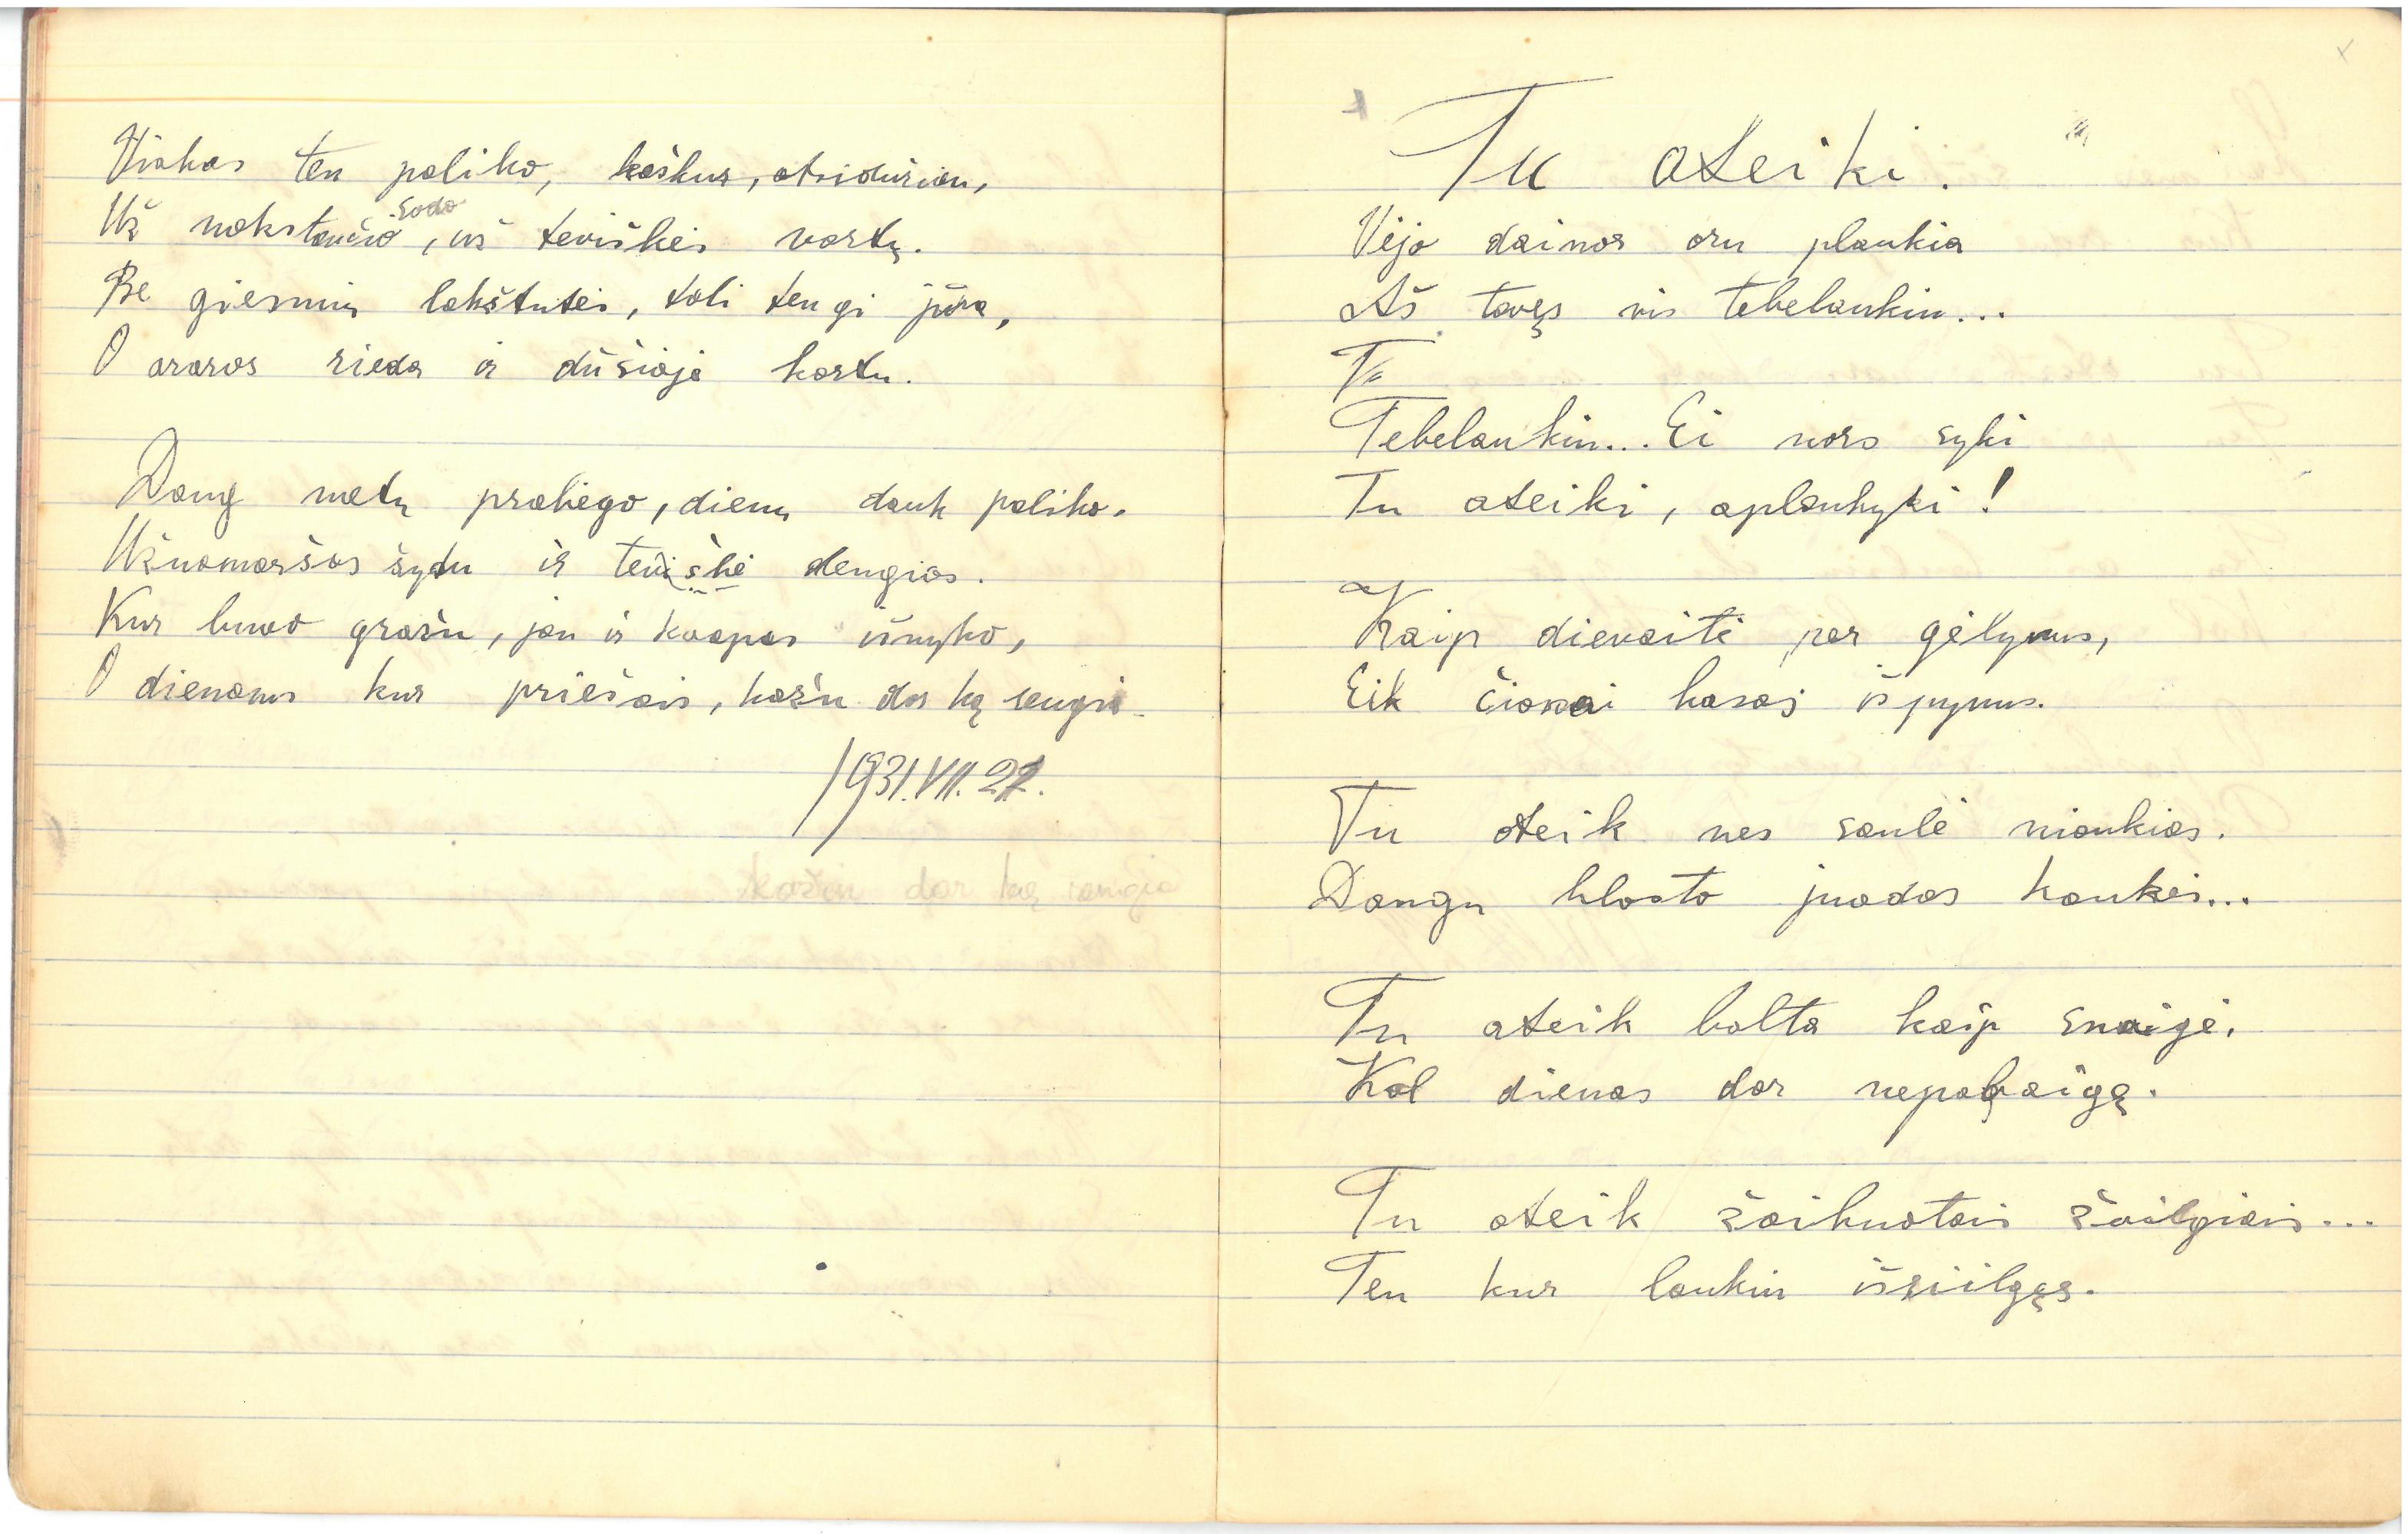 Viskas ten paliko, kažkur, atsidūriau,
Už nokstančio sodo, už teviškės vartų.
Be giesmių lakštutės, toli tengi jūra,
O ašaros rieda ir dūšioje kartu.
Daug metų prabėgo, dienų dauk paliko.
Užuomaršos šydu ir teviškė dengias.
Kur buvo gražu, jau ir kaapas išnyko,
O dienoms kur priešais, kažin dar ką rengia
1931.VII.22.
kažin dar ką rengia
Tu ateiki.
Vėjo dainos oru plaukia
Aš tavęs vis tebelaukiu...
Tu
Tebelaukiu... Ei nors syki
Tu ateiki, aplankyki!
Kaip dievaitė per gėlynus,
Eik čionai kasas išpynus.
Tu ateik nes saulė niaukias.
Dangu klosto juodos kaukės...
Tu ateik balta kaip snaigė,
Kol dienos dar nepabaigę.
Tu ateik žaihuotais žvilgiais...
Ten kur laukiu išsiilgęs.